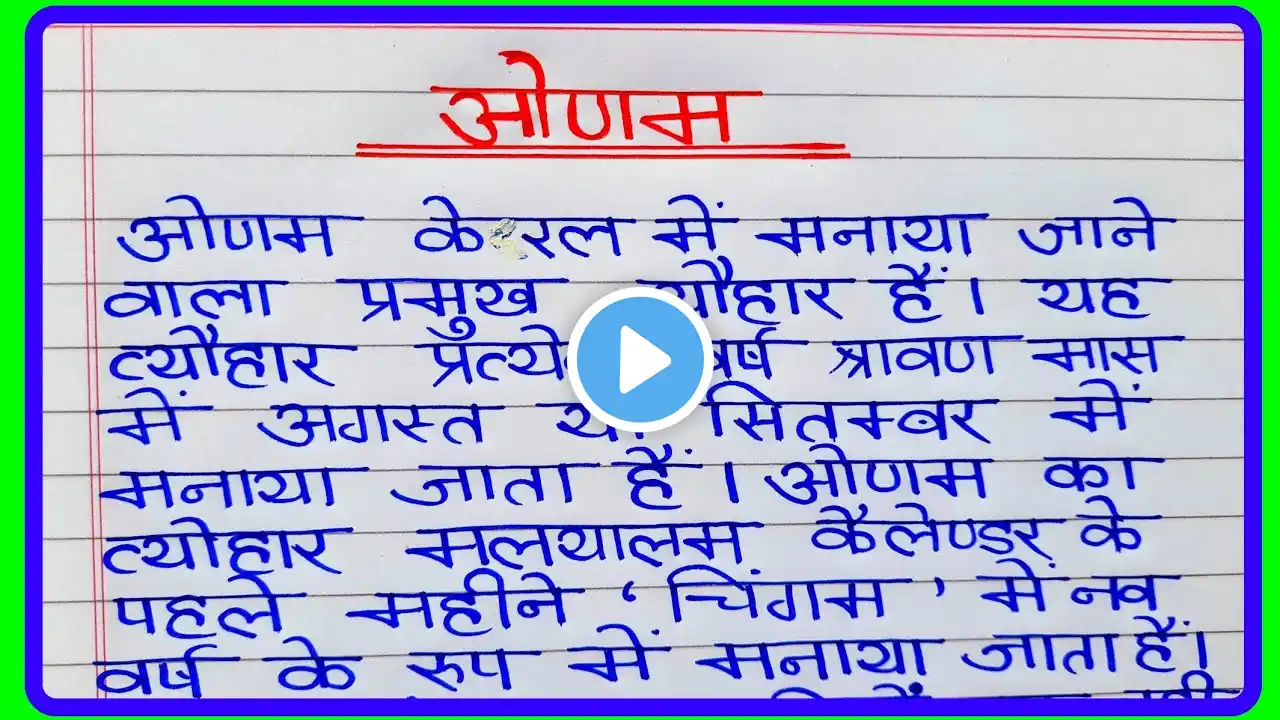 ओणम
ओणम केरल में मनाया जाने
वाला प्रमुख हैं। यह
त्यौहार वर्ष श्रावण मास
में अगस्त सितम्बर में
मनाया जाता हैं। ओणम का
त्योहार मलयालम कैलेण्डर के
पहले महीने ‘चिंगम’ में नव
वर्ष के रुप में मनाया जाता हैं।